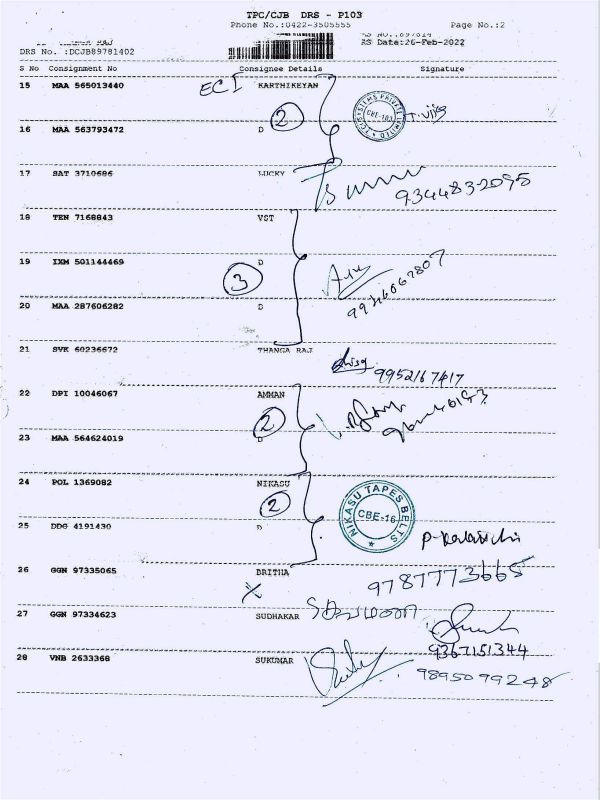 TPC/CJB DRS - P103
Phone No.:0422-3505555 Page No.:2
DRS No. :DCJB89781402 RS Date:26-Feb-2022
S No Consignment No Consignee Details Signature
15 MAA 565013440 ECI KARTHIKEYAN
2 CBE-103 T. Vijay
16 MAA 563793472 D
17 SAT 3710686 LUCKY
9344832095
18 TEN 7168843 VST
19 IXM 501144469 D
3
20 MAA 287606282 D
21 SVK 60236672 THANGA RAJ
9952167417
22 DPI 10046067 AMMAN
2
23 MAA 564624019 D
24 POL 1369082 NIKASU
2 NIKASU TAPES BELTS
CBE-16
25 DDG 4191430 D
26 GGN 97335065 BRITHA
9787773665
X
27 GGN 97334623 SUDHAKAR
9367151344
28 VNB 2633368 SUKUMAR
9895099248